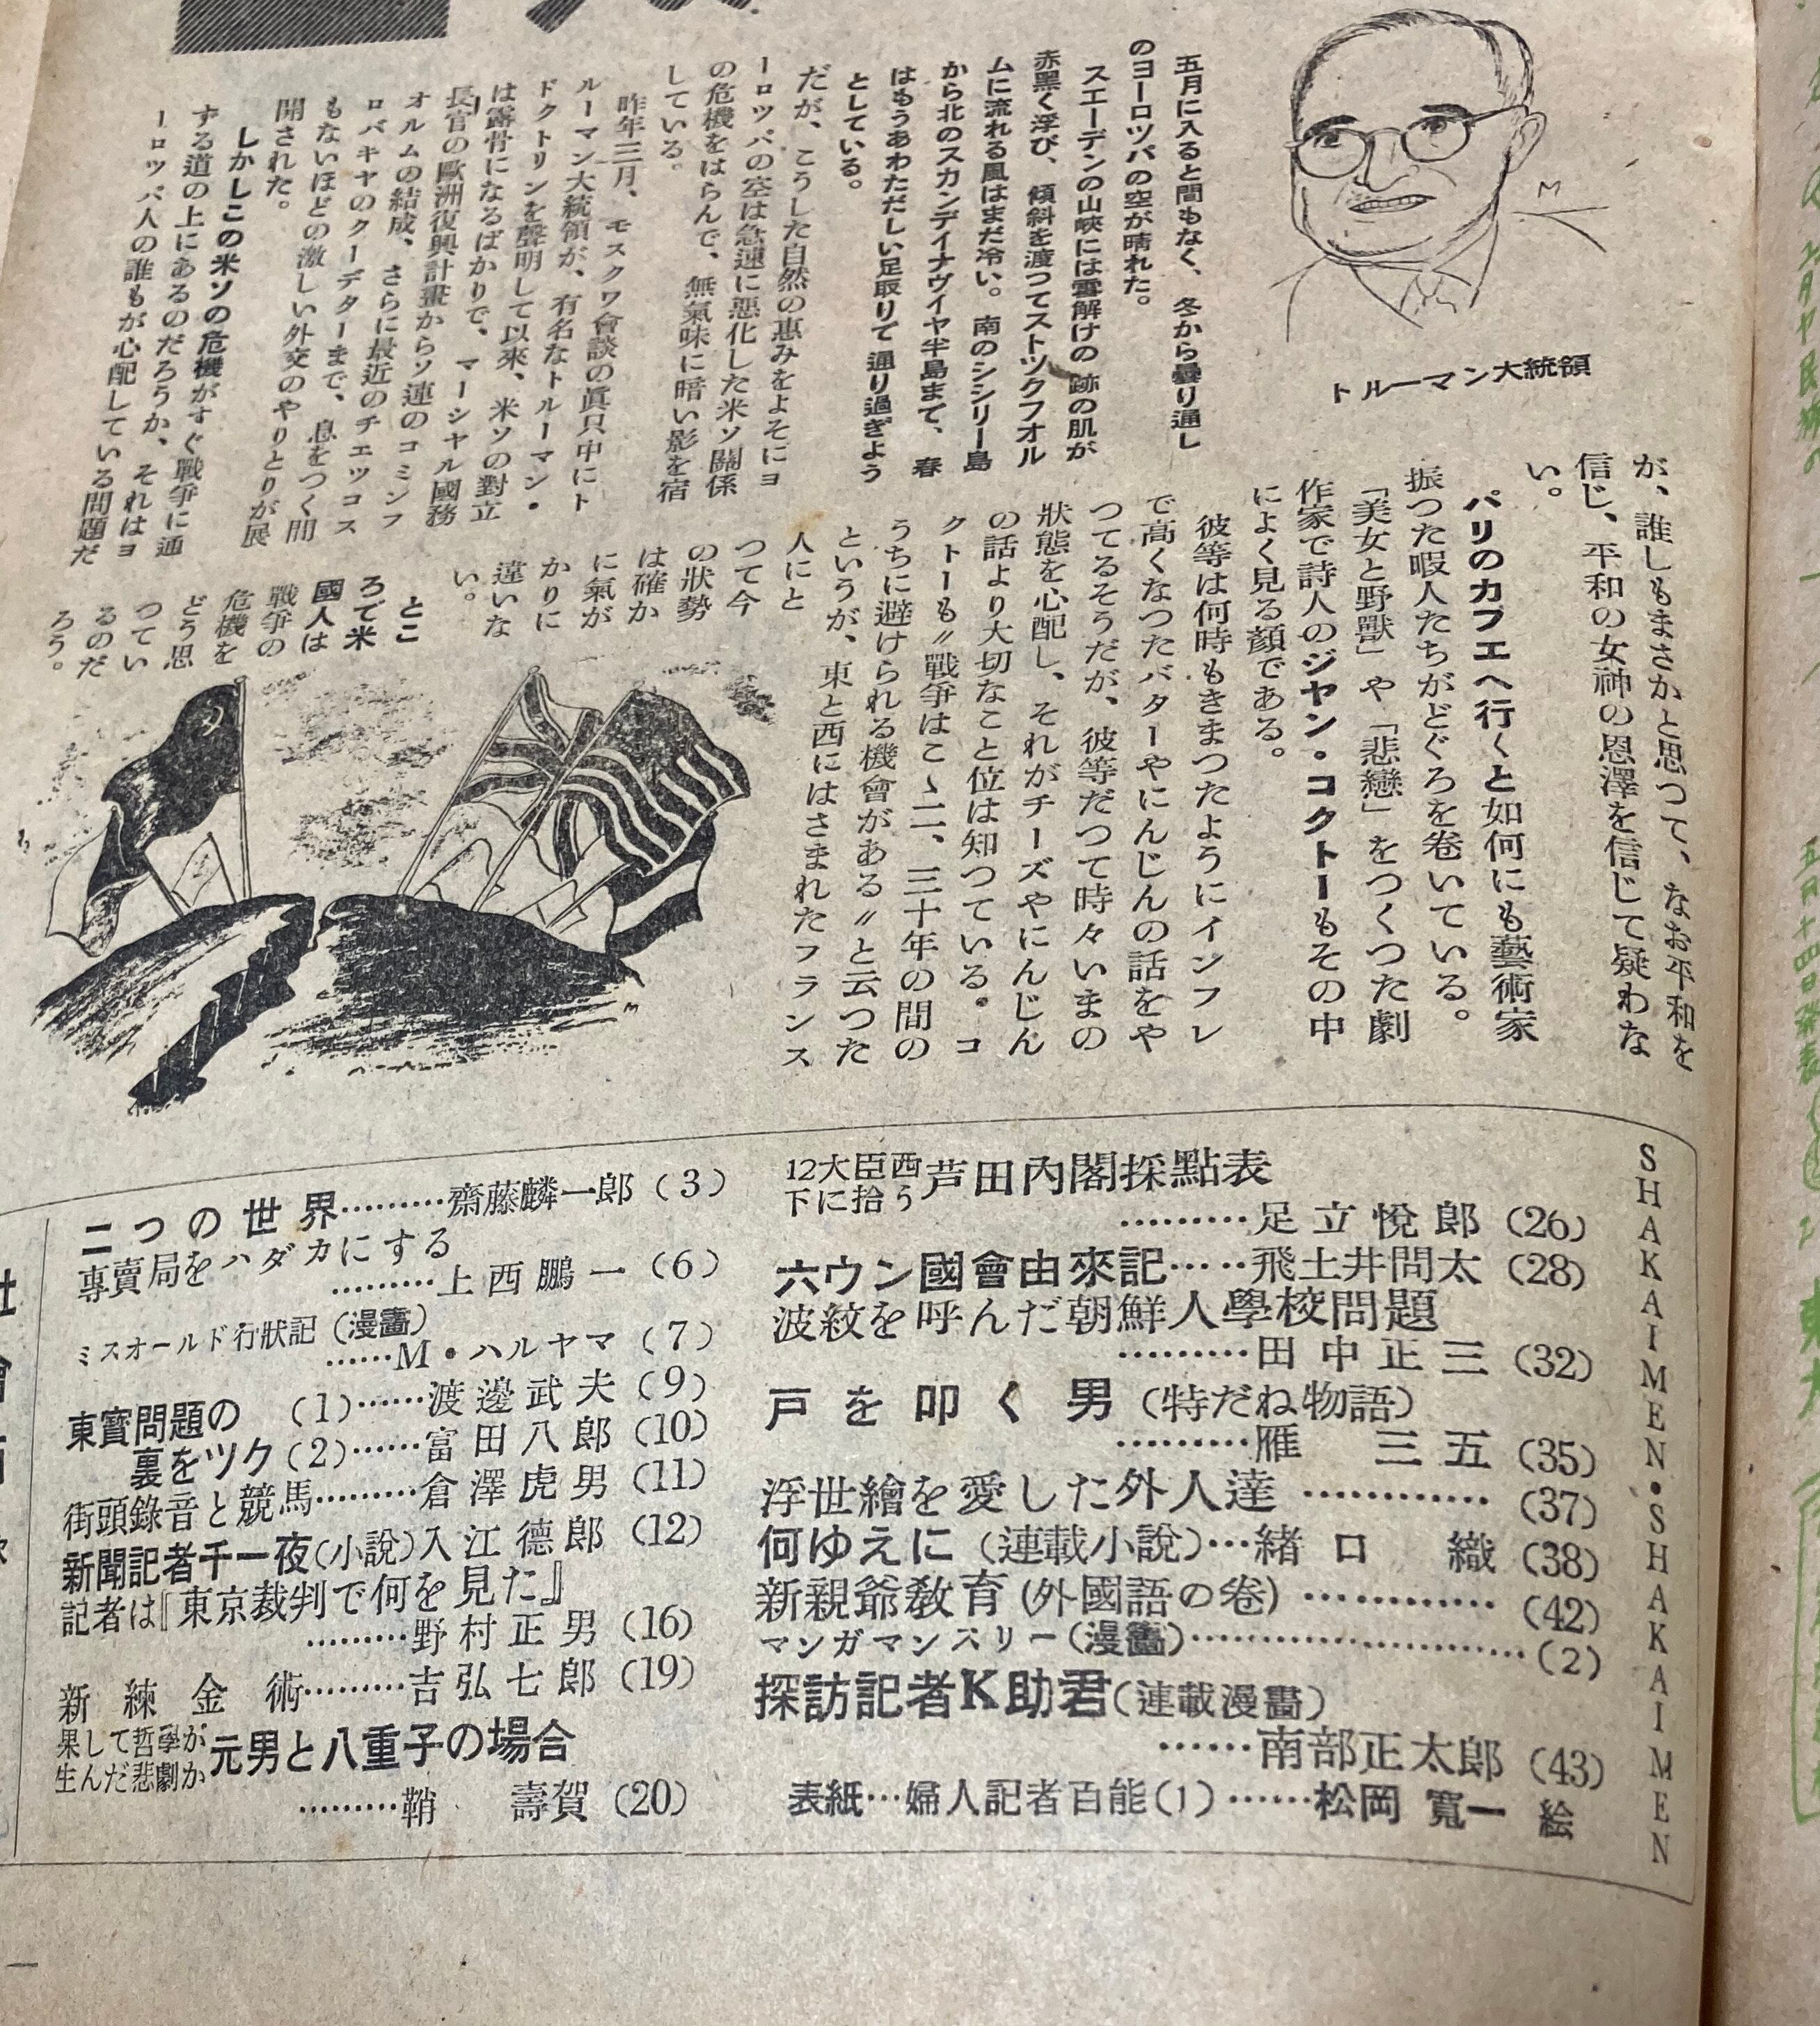 トルーマン大統領
五月に入ると間もなく、冬から曇り通し
のヨーロツパの空が晴れた。
スエーデンの山峡には雪解けの跡の肌が
赤黑く浮び、傾斜を渡つてストツクフオル
ムに流れる風はまだ冷い。南のシシリー島
から北のスカンデイナヴイヤ半島まで、春
はもうあわただしい足取りで通り過ぎよう
としている。
だが、こうした自然の惠みをよそにヨ
ーロツパの空は急速に悪化した米ソ關係
の危機をはらんで、無氣味に暗い影を宿
している。
昨年三月、モスクワ會談の眞只中にト
ルーマン大統領が、有名なトルーマン・
ドクトリンを聲明して以來、米ソの對立
は露骨になるばかりで、マーシヤル國務
長官の歐洲復興計畫からソ連のコミンフ
オルムの結成、さらに最近のチエツコス
ロバキヤのクーデターまで、息をつく間
もないほどの激しい外交のやりとりが展
開された。
しかしこの米ソの危機がすぐ戰爭に通
ずる道の上にあるのだろうか、それはヨ
ーロツパ人の誰もが心配している問題だ
が、誰しもまさかと思つて、なお平和を
信じ、平和の女神の恩澤を信じて疑わな
い。
パリのカフエへ行くと如何にも藝術家
振つた暇人たちがどぐろを卷いている。
「美女と野獸」や「悲戀」をつくつた劇
作家で詩人のジヤン・コクトーもその中
によく見る顔である。
彼等は何時もきまつたようにインフレ
で高くなつたバターやにんじんの話をや
つてるそうだが、彼等だつて時々いまの
狀態を心配し、それがチーズやにんじん
の話より大切なこと位は知つている。コ
クトーも〃戰爭はこゝ二、三十年の間の
うちに避けられる機會がある〃と云つた
というが、東と西にはさまれたフランス
人にと
つて今
の狀勢
は確か
に氣が
かりに
違いな
い。
とこ
ろで米
國人は
戰爭の
危機を
どう思
つてい
るのだ
ろう。
SHAKAIMEN・SHAKAIMEN
二つの世界………齋藤麟一郎(3)
專賣局をハダカにする
………上西鵬一(6)
ミスオールド行狀記(漫畵)
……M・ハルヤマ(7)
東寳問題の(1)……渡邊武夫(9)
裏をツク(2)……富田八郎(10)
街頭錄音と競馬………倉澤虎男(11)
新聞記者千一夜(小說)入江德郎(12)
記者は『東京裁判で何を見た』
………野村正男(16)
新練金術………吉弘七郎(19)
果して哲學が
生んだ悲劇か
元男と八重子の場合
………鞘 壽賀(20)
12大臣西
下に拾う
芦田內閣採點表
………足立悅郎(26)
六ウン國會由來記……飛土井問太(28)
波紋を呼んだ朝鮮人學校問題
………田中正三(32)
戸を叩く男(特だね物語)
………雁 三五(35)
浮世繪を愛した外人達…………(37)
何ゆえに(連載小說)…緒口 織(38)
新親爺敎育(外國語の卷)…………(42)
マンガマンスリー(漫畵)…………………(2)
探訪記者K助君(連載漫畵)
……南部正太郎(43)
表紙…婦人記者百能(1)……松岡寬一 絵